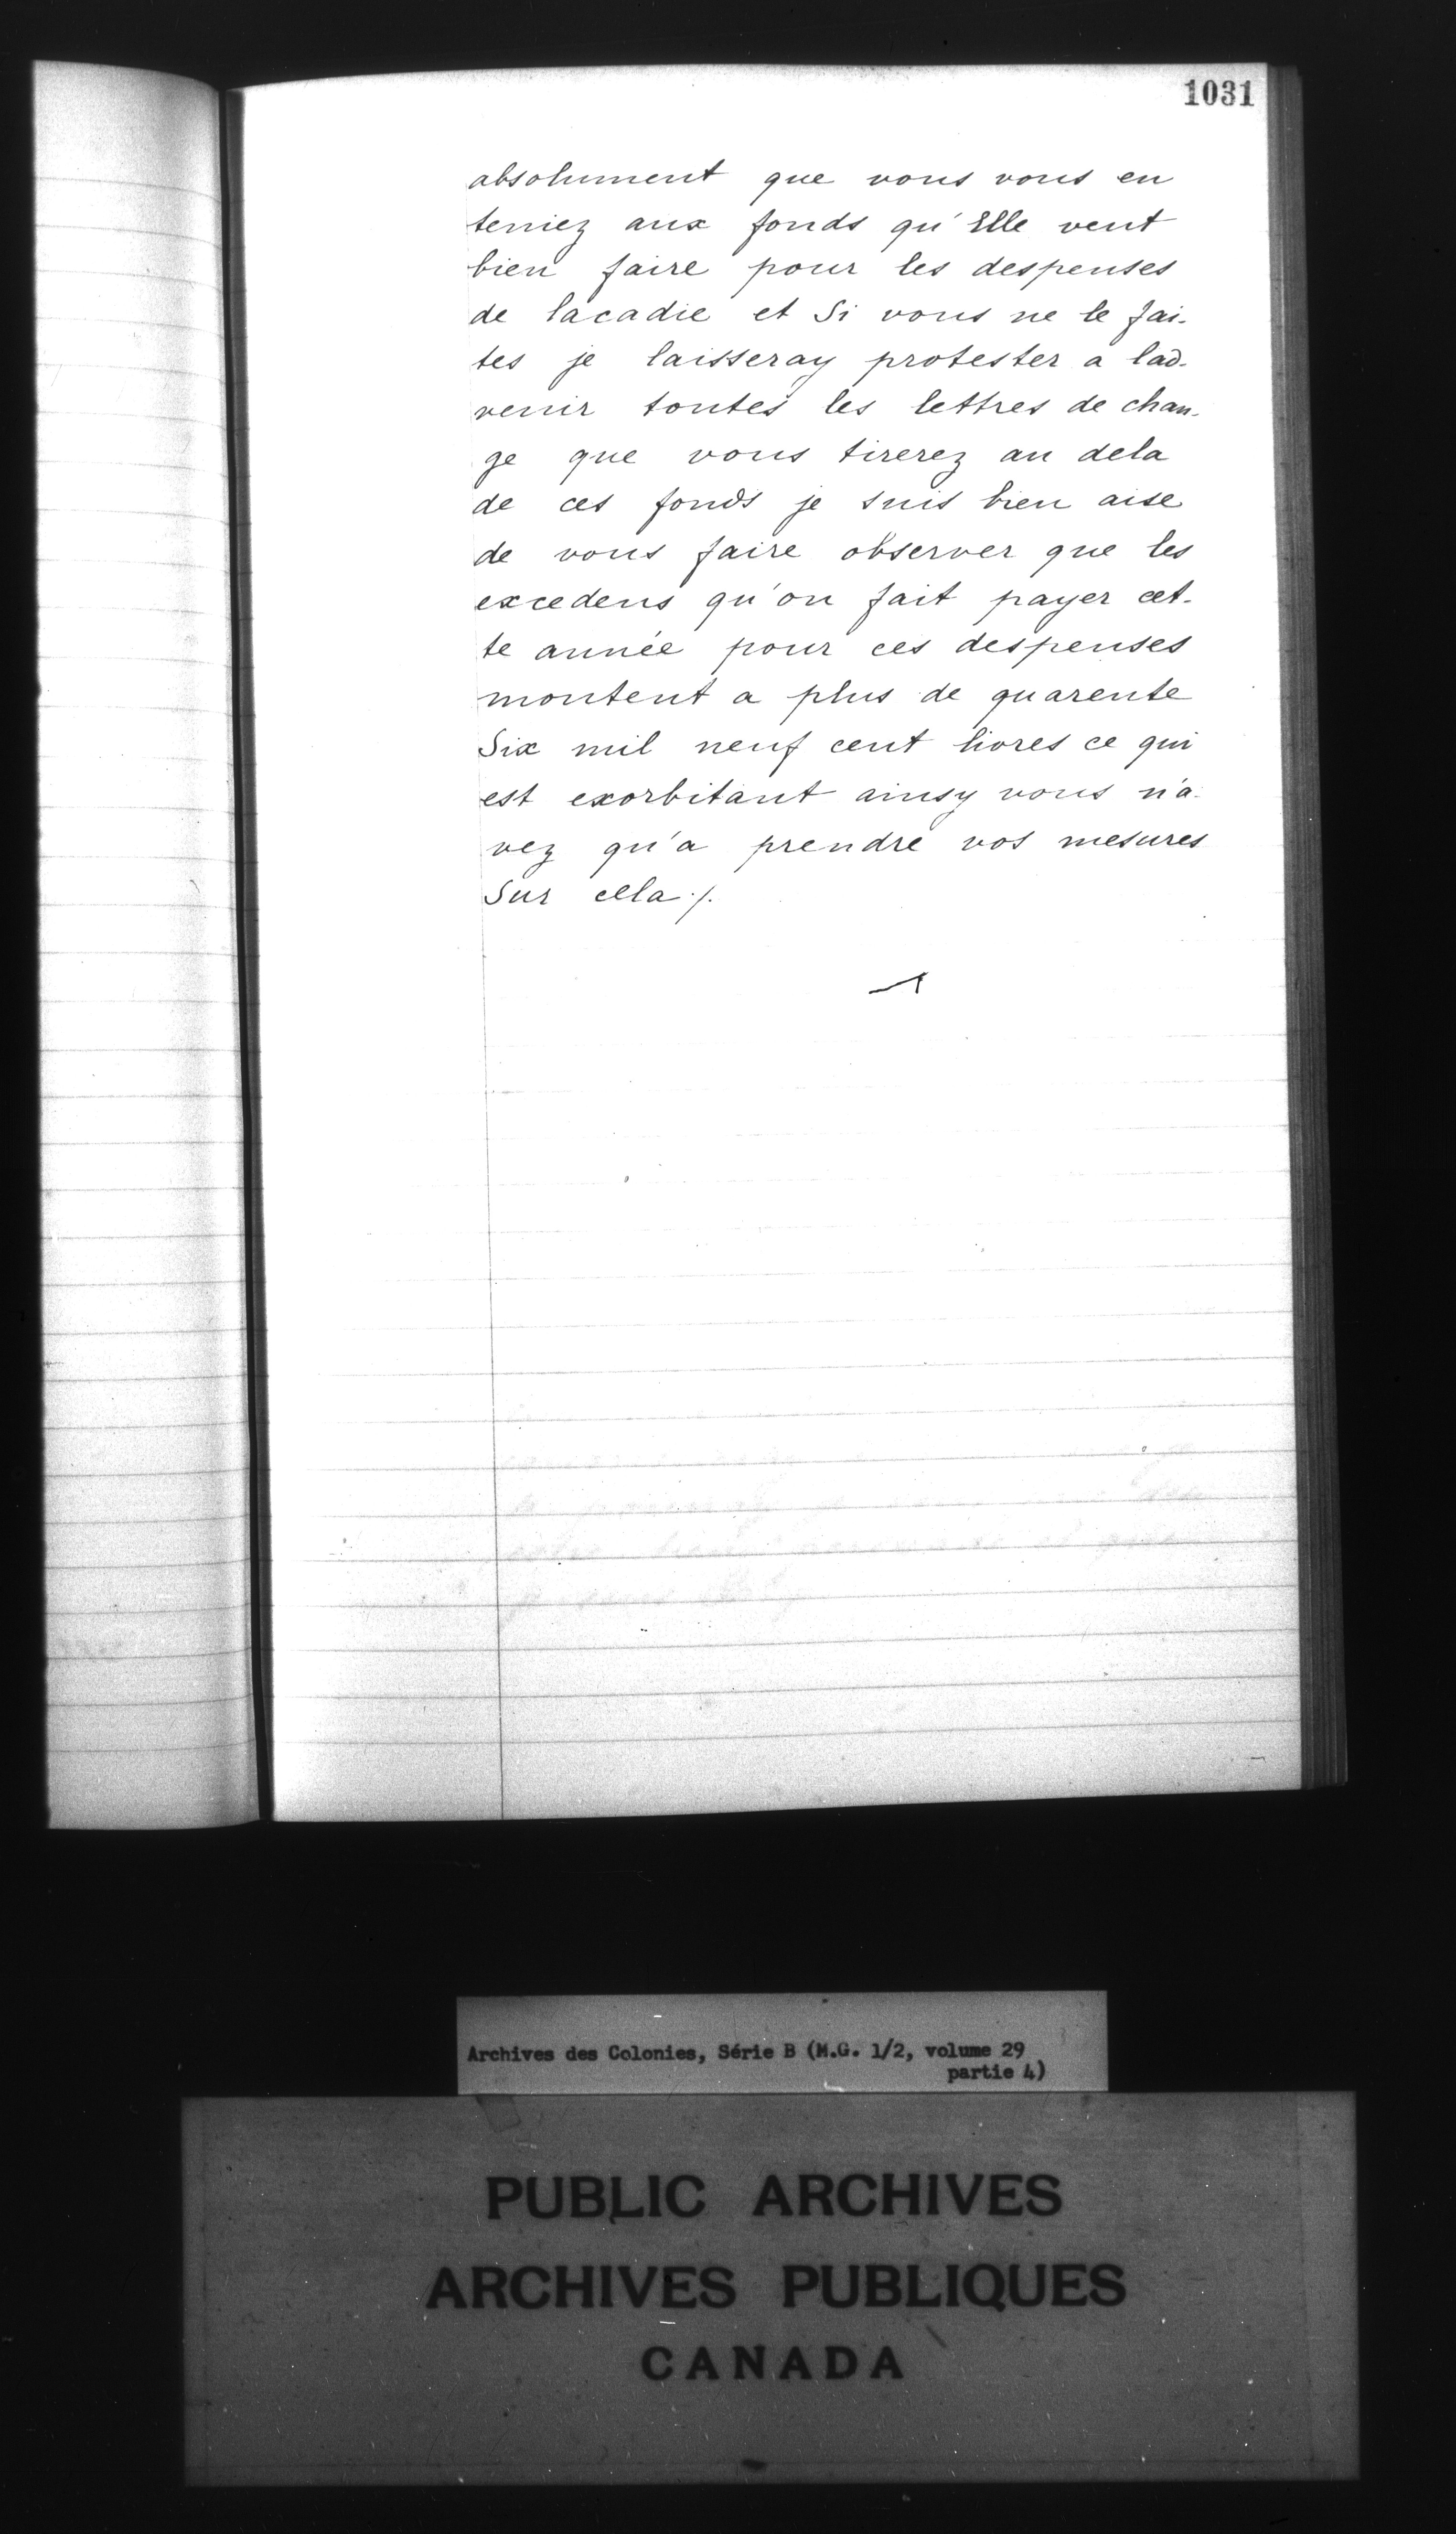 1031
absolument que vous vous en
teniez aux fonds qu'Elle veut
bien faire pour les despenses
de lacadie et Si vous ne le fai-
tes je laisseray protester a lad-
venir toutes les lettres de chan-
ge que vous tirerez au dela
de ces fonds je suis bien aise
de vous faire observer que les
excedens qu'on fait payer cet-
te année pour ces despenses
montent a plus de quarente
Six mil neuf cent livres ce qui
est exorbitant ainsy vous n'a-
vez qu'a prendre vos mesures
Sur cela ./.
Archives des Colonies, Série B (M.G. 1/2, volume 29
partie 4)
PUBLIC ARCHIVES
ARCHIVES PUBLIQUES
CANADA